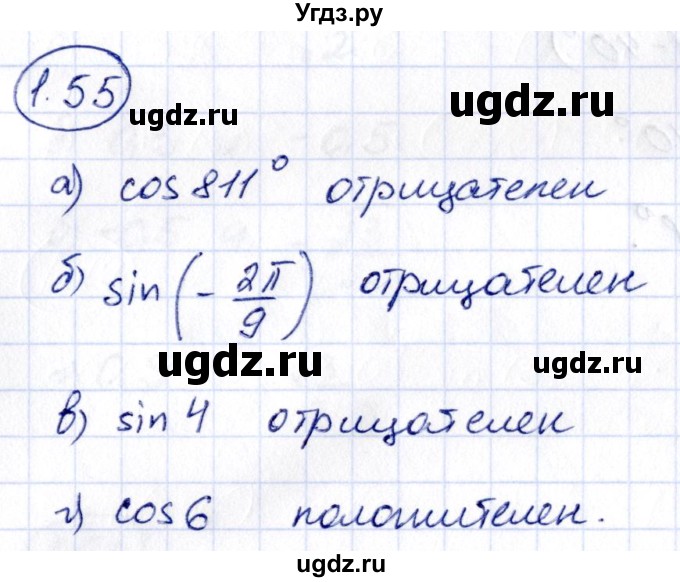 Угдз.ру
1.55
ugdz.ru ugdz.ru
а) cos 811° отрицателен
б) sin(-2π/9) отрицателен
ugdz.ru ugdz.ru
в) sin 4 отрицателен
г) cos 6 положителен.
ugdz.ru